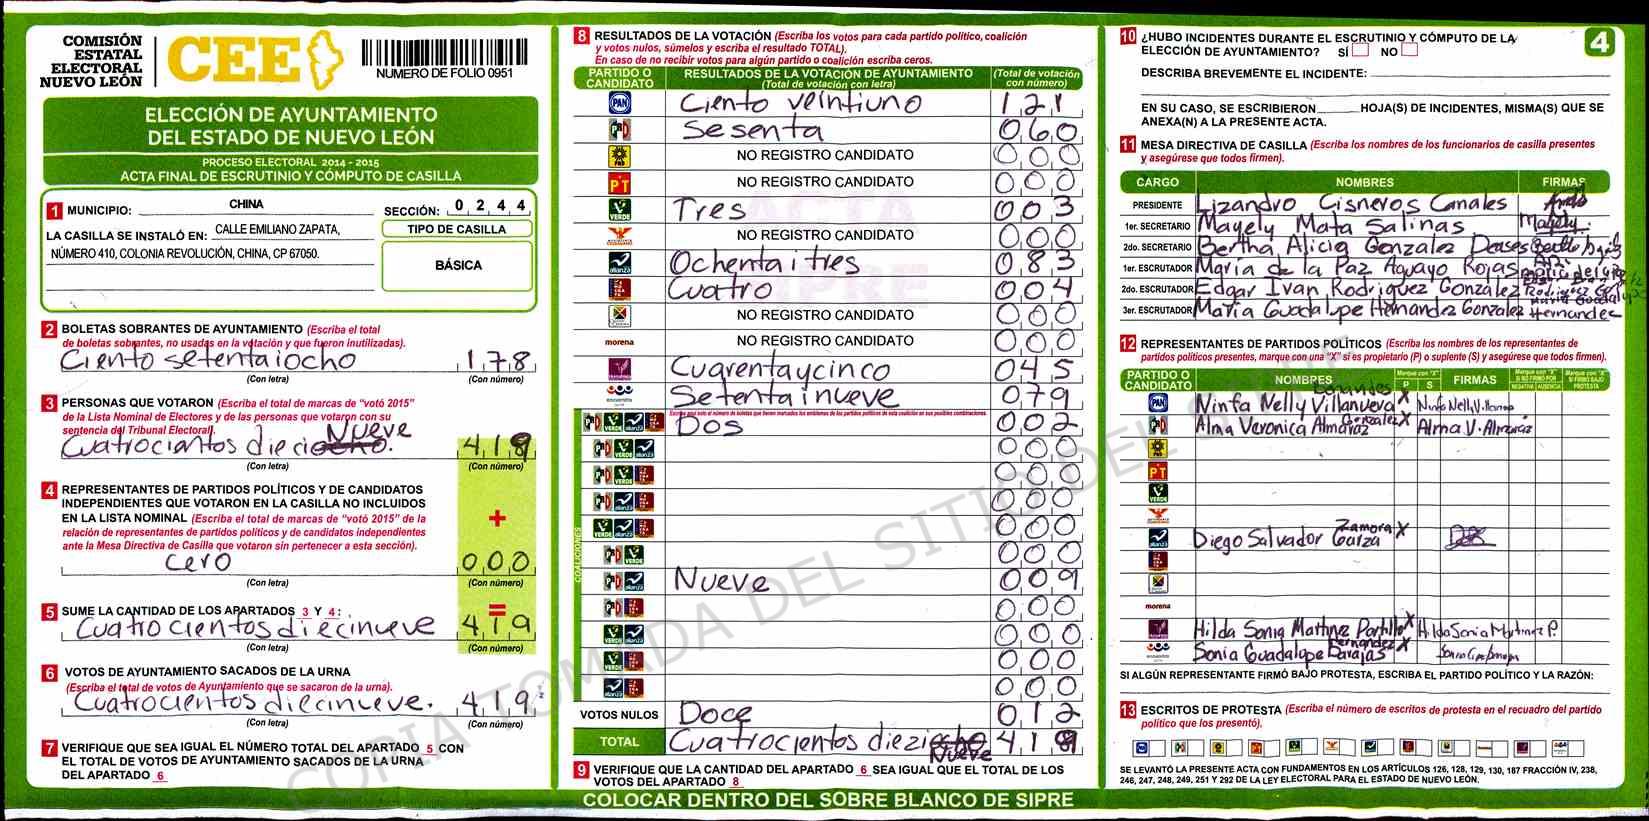 COMISIÓN
ESTATAL
ELECTORAL
NUEVO LEÓN
CEE
NUMERO DE FOLIO 0951
ELECCIÓN DE AYUNTAMIENTO
DEL ESTADO DE NUEVO LEÓN
PROCESO ELECTORAL 2014 - 2015
ACTA FINAL DE ESCRUTINIO Y CÓMPUTO DE CASILLA
1 MUNICIPIO: CHINA SECCIÓN: 0 2 4 4
LA CASILLA SE INSTALÓ EN: CALLE EMILIANO ZAPATA,
NÚMERO 410, COLONIA REVOLUCIÓN, CHINA, CP 67050.
TIPO DE CASILLA
BÁSICA
2 BOLETAS SOBRANTES DE AYUNTAMIENTO (Escriba el total
de boletas sobrantes, no usadas en la votación y que fueron inutilizadas).
Ciento setentaiocho 178
(Con letra) (Con número)
3 PERSONAS QUE VOTARON (Escriba el total de marcas de "votó 2015"
de la Lista Nominal de Electores y de las personas que votaron con su
sentencia del Tribunal Electoral).
Nueve
Cuatrocientos diecio 419
(Con letra) (Con número)
4 REPRESENTANTES DE PARTIDOS POLÍTICOS Y DE CANDIDATOS
INDEPENDIENTES QUE VOTARON EN LA CASILLA NO INCLUIDOS
EN LA LISTA NOMINAL (Escriba el total de marcas de "votó 2015" de la
relación de representantes de partidos políticos y de candidatos independientes
ante la Mesa Directiva de Casilla que votaron sin pertenecer a esta sección).
+
cero 000
(Con letra) (Con número)
5 SUME LA CANTIDAD DE LOS APARTADOS 3 Y 4: =
Cuatrocientos diecinueve 419
(Con letra) (Con número)
6 VOTOS DE AYUNTAMIENTO SACADOS DE LA URNA
(Escriba el total de votos de Ayuntamiento que se sacaron de la urna).
Cuatrocientos diecinueve. 419
(Con letra) (Con número)
7 VERIFIQUE QUE SEA IGUAL EL NÚMERO TOTAL DEL APARTADO 5 CON
EL TOTAL DE VOTOS DE AYUNTAMIENTO SACADOS DE LA URNA
DEL APARTADO 6
8 RESULTADOS DE LA VOTACIÓN (Escriba los votos para cada partido político, coalición
y votos nulos, súmelos y escriba el resultado TOTAL).
En caso de no recibir votos para algún partido o coalición escriba ceros.
PARTIDO O CANDIDATO RESULTADOS DE LA VOTACIÓN DE AYUNTAMIENTO (Total de votación con letra) (Total de votación con número)
PAN Ciento veintiuno 121
PRD Sesenta 060
PRD NO REGISTRO CANDIDATO 000
PT NO REGISTRO CANDIDATO 000
VERDE Tres 003
NO REGISTRO CANDIDATO 000
alianza Ochentaitres 083
Cuatro 004
NO REGISTRO CANDIDATO 000
morena NO REGISTRO CANDIDATO 000
Cuarentaycinco 045
encuentro Setentainueve 079
VERDE alianza Dos 002
VERDE alianza 000
VERDE 000
alianza 000
VERDE alianza 000
VERDE 000
alianza Nueve 009
000
VERDE alianza 000
VERDE 000
alianza 000
COALICIONES
VOTOS NULOS Doce 012
TOTAL Cuatrocientos diezi 419
Nueve
9 VERIFIQUE QUE LA CANTIDAD DEL APARTADO 6 SEA IGUAL QUE EL TOTAL DE LOS
VOTOS DEL APARTADO 8
COLOCAR DENTRO DEL SOBRE BLANCO DE SIPRE
10 ¿HUBO INCIDENTES DURANTE EL ESCRUTINIO Y CÓMPUTO DE LA
ELECCIÓN DE AYUNTAMIENTO? SÍ NO
4
DESCRIBA BREVEMENTE EL INCIDENTE:
EN SU CASO, SE ESCRIBIERON HOJA(S) DE INCIDENTES, MISMA(S) QUE SE
ANEXA(N) A LA PRESENTE ACTA.
11 MESA DIRECTIVA DE CASILLA (Escriba los nombres de los funcionarios de casilla presentes
y asegúrese que todos firmen).
CARGO NOMBRES FIRMAS
PRESIDENTE Lizandro Cisneros Canales
1er. SECRETARIO Mayely Mata Salinas Mayely
2do. SECRETARIO Bertha Alicia Gonzalez
1er. ESCRUTADOR Maria de la Paz Aguayo Rojas
2do. ESCRUTADOR Edgar Ivan Rodriguez González
3er. ESCRUTADOR Maria Guadalupe Hernandez Gonzalez Hernandez
12 REPRESENTANTES DE PARTIDOS POLÍTICOS (Escriba los nombres de los representantes de
partidos políticos presentes, marque con una "X" si es propietario (P) o suplente (S) y asegúrese que todos firmen).
PARTIDO O CANDIDATO NOMBRES Marque con "X" P S FIRMAS Marque con "X" SI NO FIRMÓ POR NEGATIVA AUSENCIA Marque con "X" SI FIRMÓ BAJO PROTESTA
PAN Ninfa Nelly Villanueva X
Alma Veronica Almaraz Gonzalez X Alma V. Almaraz
PRD
PT
VERDE
alianza Diego Salvador Zamora Garza X
morena
Hilda Sonia Martinez Portillo X Hilda Sonia Martinez P.
Sonia Guadalupe Fernandez Barajas X
SI ALGÚN REPRESENTANTE FIRMÓ BAJO PROTESTA, ESCRIBA EL PARTIDO POLÍTICO Y LA RAZÓN:
13 ESCRITOS DE PROTESTA (Escriba el número de escritos de protesta en el recuadro del partido
político que los presentó).
SE LEVANTÓ LA PRESENTE ACTA CON FUNDAMENTOS EN LOS ARTÍCULOS 126, 128, 129, 130, 187 FRACCIÓN IV, 238,
246, 247, 248, 249, 251 Y 292 DE LA LEY ELECTORAL PARA EL ESTADO DE NUEVO LEÓN.
COPIA TOMADA DEL SITIO DEL SIPRE